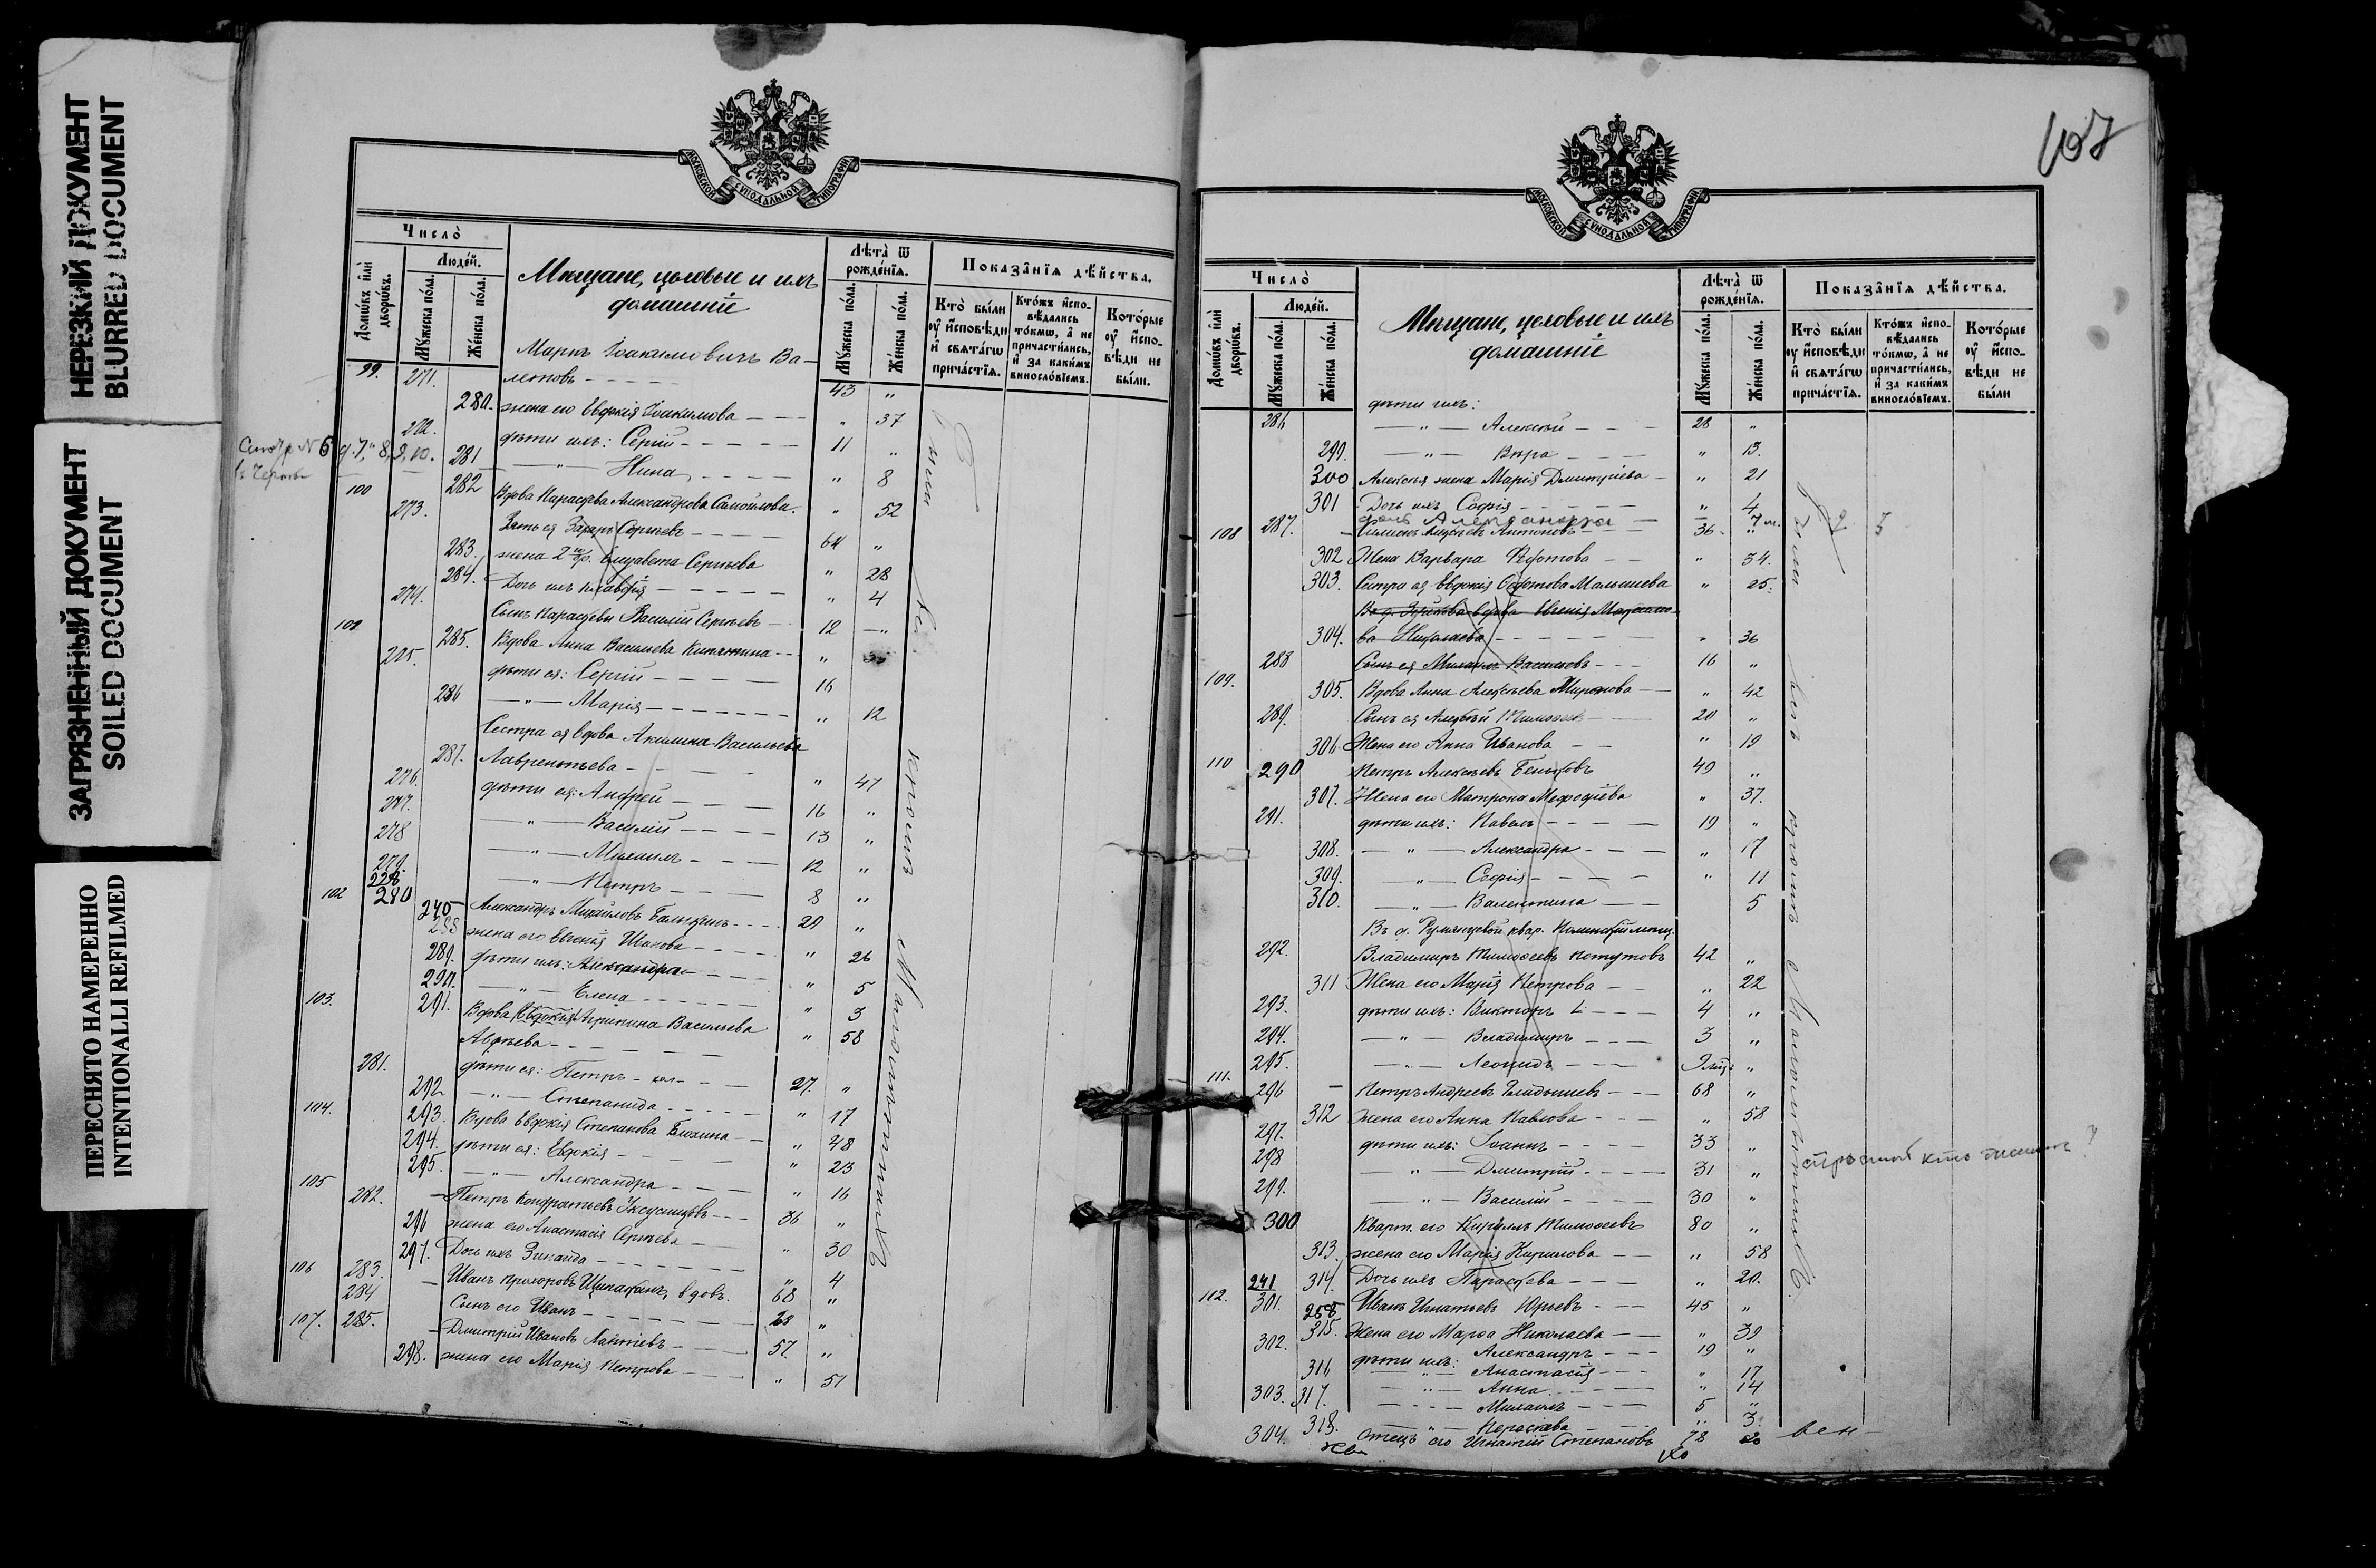 НЕРЕЗКИЙ ДОКУМЕНТ
BLURRED DOCUMENT
ЗАГРЯЗНЕННЫЙ ДОКУМЕНТ
SOILED DOCUMENT
ПЕРЕСНЯТО НАМЕРЕННО
INTENTIONALLI REFILMED
МОСКОВСКОЙ СУНОДАЛЬНОЙ ТИПОГРАФІИ
Число̀
Домѡвъ и҆лѝ дворѡвъ.
Людє́й.
Мꙋ́жеска по́ла.
Же́нска по́ла.
Мѣщане, цеховые и ихъ домашніе
Лѣта̀ ѿ рожде́нїѧ.
Мꙋ́жеска по́ла.
Же́нска по́ла.
Показа̑нїѧ дѣ́йства.
Кто̀ бы́ли ᲂу҆ и҆сповѣди и҆ свѧта́гѡ прича́стїѧ.
Кто́жъ и҆спо-вѣдались то́кмѡ, а҆ не причасти́лись, и҆ за каки́мъ винослóвїемъ.
Кото́рые ᲂу҆ и҆спо-вѣди не бы́ли.
99. 271. Маркъ Іоакимовичъ Ва-
летовъ 43 „
280. жена его Евдокія Іоакимова „ 37
272. дѣти ихъ: Сергій 11 „
281 „ Нина „ 8
100 282 Вдова Параскева Александрова Самойлова. „ 52
273. Зять ея Захаръ Сергѣевъ 64 „
283. жена 2 бр. Елизавета Сергѣева „ 28
284. Дочь ихъ Клавдія „ 4
274. Сынъ Параскевы Василій Сергѣевъ 12 „
101 285. Вдова Анна Васильева Кипяткина „
275. дѣти ея: Сергій 16
286 „ Марія „ 12
Сестра ея вдова Акилина Васильева
287. Лаврентьева „ 47
276. дѣти ея: Андрей 16 „
277. „ Василій 13 „
278 „ Михаилъ 12 „
279. „ Петръ 8 „
102 280 Александръ Михайловъ Балыкинъ 29 „
288 жена его Евгенія Иванова „ 26
289. дѣти ихъ: Александра „ 5
290. „ Елена „ 3
103. 291. Вдова Евдокія Агрипина Васильева „ 58
Авдѣева
281. дѣти ея: Петръ 27. „
292 „ Степанида „ 17
104. 293. Вдова Евдокія Степанова Блохина „ 48
294. дѣти ея: Евдокія „ 23
295. „ Александра „ 16
105 282. Петръ Кондратьевъ Уксусниковъ 36 „
296 жена его Анастасія Сергѣева „ 30
297. Дочь ихъ Зинаида „ 4
106 283. Иванъ Прохоровъ Щипахинъ, вдов. 68 „
284 Сынъ его Иванъ 28 „
107. 285. Дмитрій Ивановъ Лаптевъ 57. „
298. жена его Марія Петрова „ 51
107
МОСКОВСКОЙ СУНОДАЛЬНОЙ ТИПОГРАФІИ
Число̀
Домѡвъ и҆лѝ дворѡвъ.
Людє́й.
Мꙋ́жеска по́ла.
Же́нска по́ла.
Мѣщане, цеховые и ихъ домашніе
Лѣта̀ ѿ рожде́нїѧ.
Мꙋ́жеска по́ла.
Же́нска по́ла.
Показа̑нїѧ дѣ́йства.
Кто̀ бы́ли ᲂу҆ и҆сповѣди и҆ свѧта́гѡ прича́стїѧ.
Кто́жъ и҆спо-вѣдались то́кмѡ, а҆ не причасти́лись, и҆ за каки́мъ винослóвїемъ.
Кото́рые ᲂу҆ и҆спо-вѣди не бы́ли
дѣти ихъ:
286 „ Алексѣй 28 „
299. „ Вѣра „ 13.
300 Алексѣя жена Марія Дмитріева „ 21
301 Дочь ихъ Софія „ 4
дочь Александра „ 7 м.
108 287. Антоновъ 36 „
302 Жена Варвара Федотова „ 34.
303. Сестра ея Евдокія Федотова Малышева „ 25.
304. ва Николаева „ 36
288 Сынъ ея Михаилъ Васильевъ 16 „
109. 305. Вдова Анна Алексѣева Миронова „ 42
289. Сынъ ея Алексѣй Тимоѳеевъ 20 „
306 Жена его Анна Иванова „ 19
110 290 Петръ Алексѣевъ Бельковъ 49 „
307. Жена его Матрона Мефодіева „ 37.
291. дѣти ихъ: Павелъ 19 „
308. „ Александра „ 17
309. „ Софія „ 11
310. „ Валентина 5
Въ д. Румянцевой квар. Коломенскій мѣщ.
292. Владимиръ Тимоѳеевъ Кочутовъ 42 „
311 Жена его Марія Петрова „ 22
293. дѣти ихъ: Викторъ 4 „
294. „ Владимиръ 3 „
295. „ Леонидъ „
111. 296 Петръ Андреевъ Гладышевъ 68 „
312 жена его Анна Павлова „ 58
297. дѣти ихъ: Іоаннъ 33 „
298 „ Дмитрій 31 „
299. „ Василій 30 „
300 Кварт. его Кириллъ Тимоѳеевъ 80 „
313. жена его Марія Кирилова „ 58
314. Дочь ихъ Параскева „ 20.
112. 301. Иванъ Игнатьевъ Юрьевъ 45 „
315. Жена его Марѳа Николаева „ 39
302. дѣти ихъ: Александръ 19 „
316 „ Анастасія „ 17
317. „ Анна „ 14
303. „ Михаилъ 5 „
318. „ Параскева „ 3.
304. отецъ его Игнатій Степановъ 78